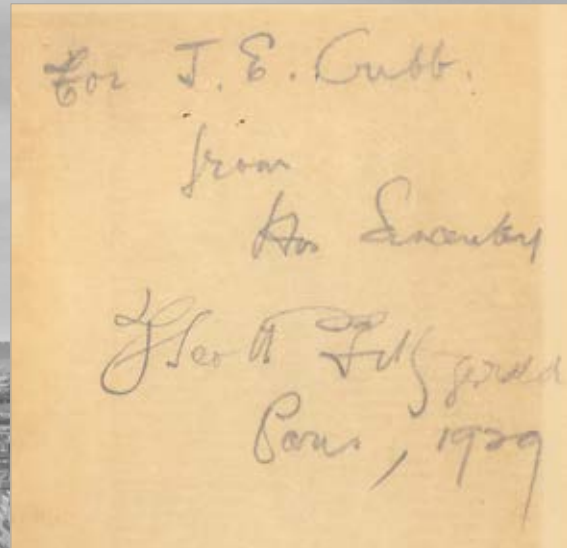 For J. E. Cubb.
from
His Sincerely
F Scott Fitzgerald
Paris, 1929